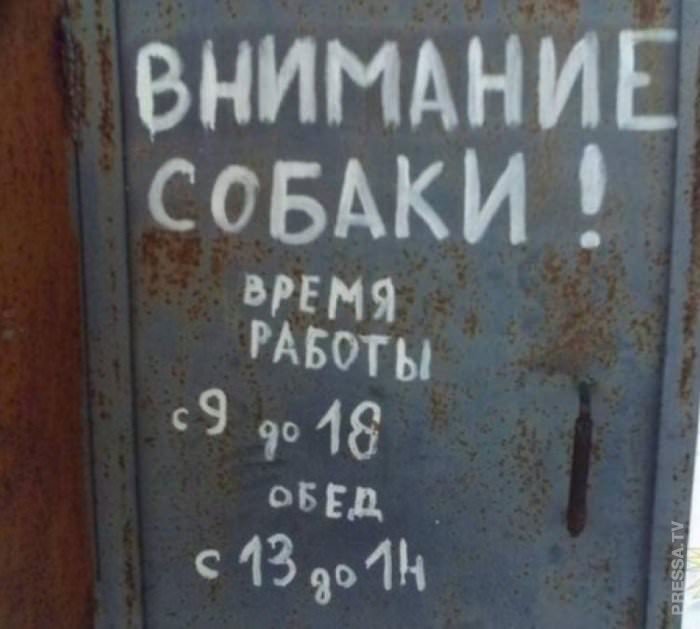 ВНИМАНИЕ
СОБАКИ !
ВРЕМЯ
РАБОТЫ
с 9 до 18
ОБЕД
с 13 до 14
PRESSA.TV